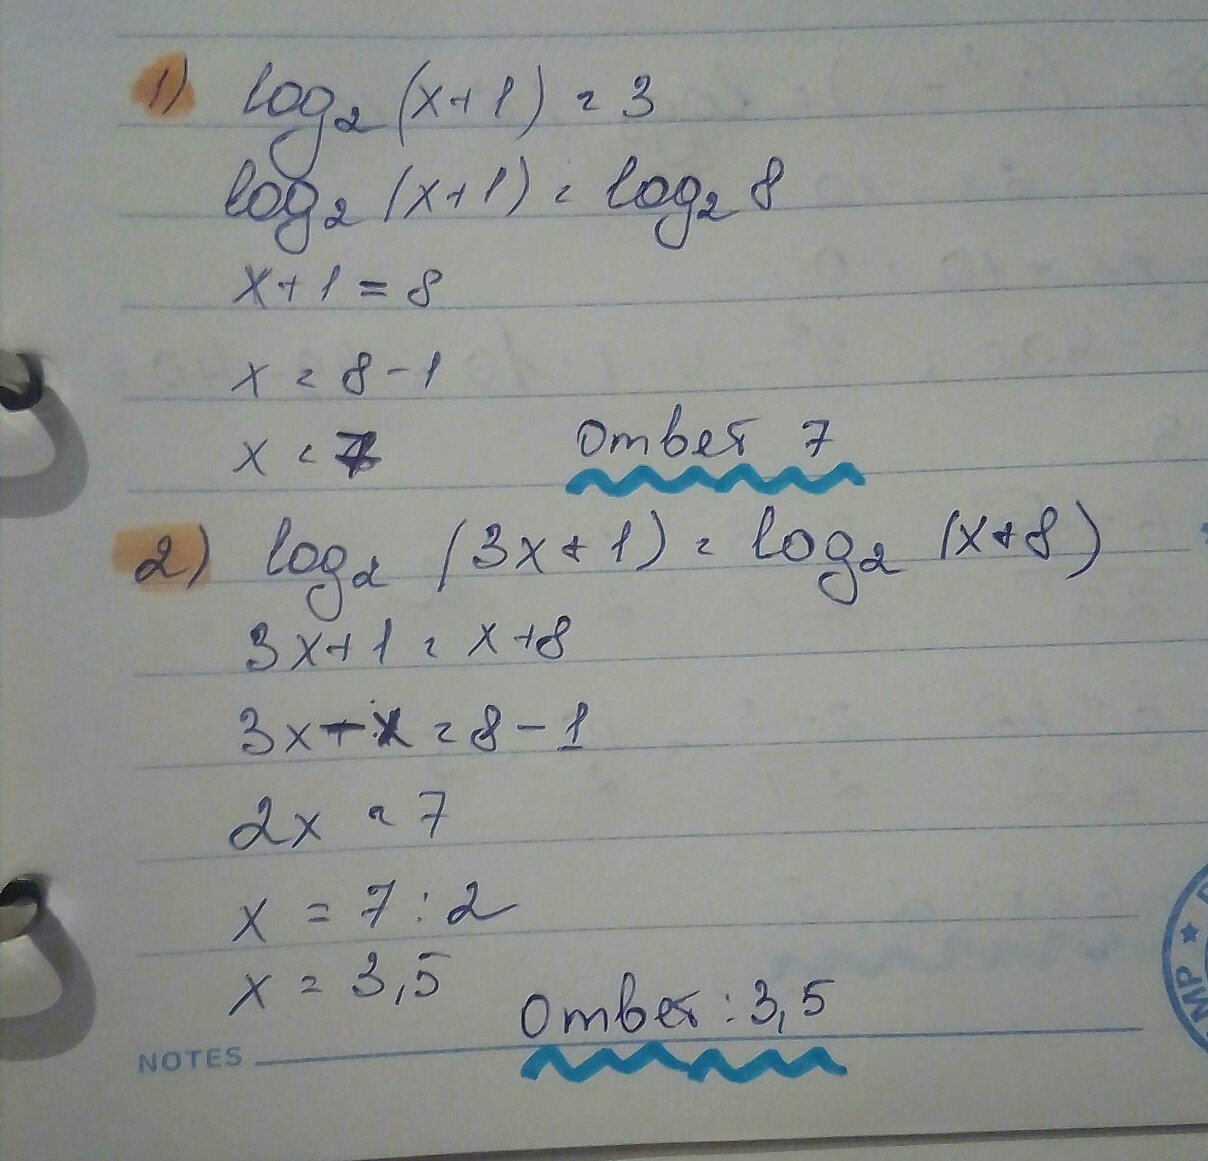 1) log₂ (x+1) = 3
log₂ (x+1) = log₂ 8
x+1 = 8
x = 8-1
x = 7
Ответ 7
2) log₂ (3x+1) = log₂ (x+8)
3x+1 = x+8
3x-x = 8-1
2x = 7
x = 7:2
x = 3,5
Ответ: 3,5
NOTES
MP